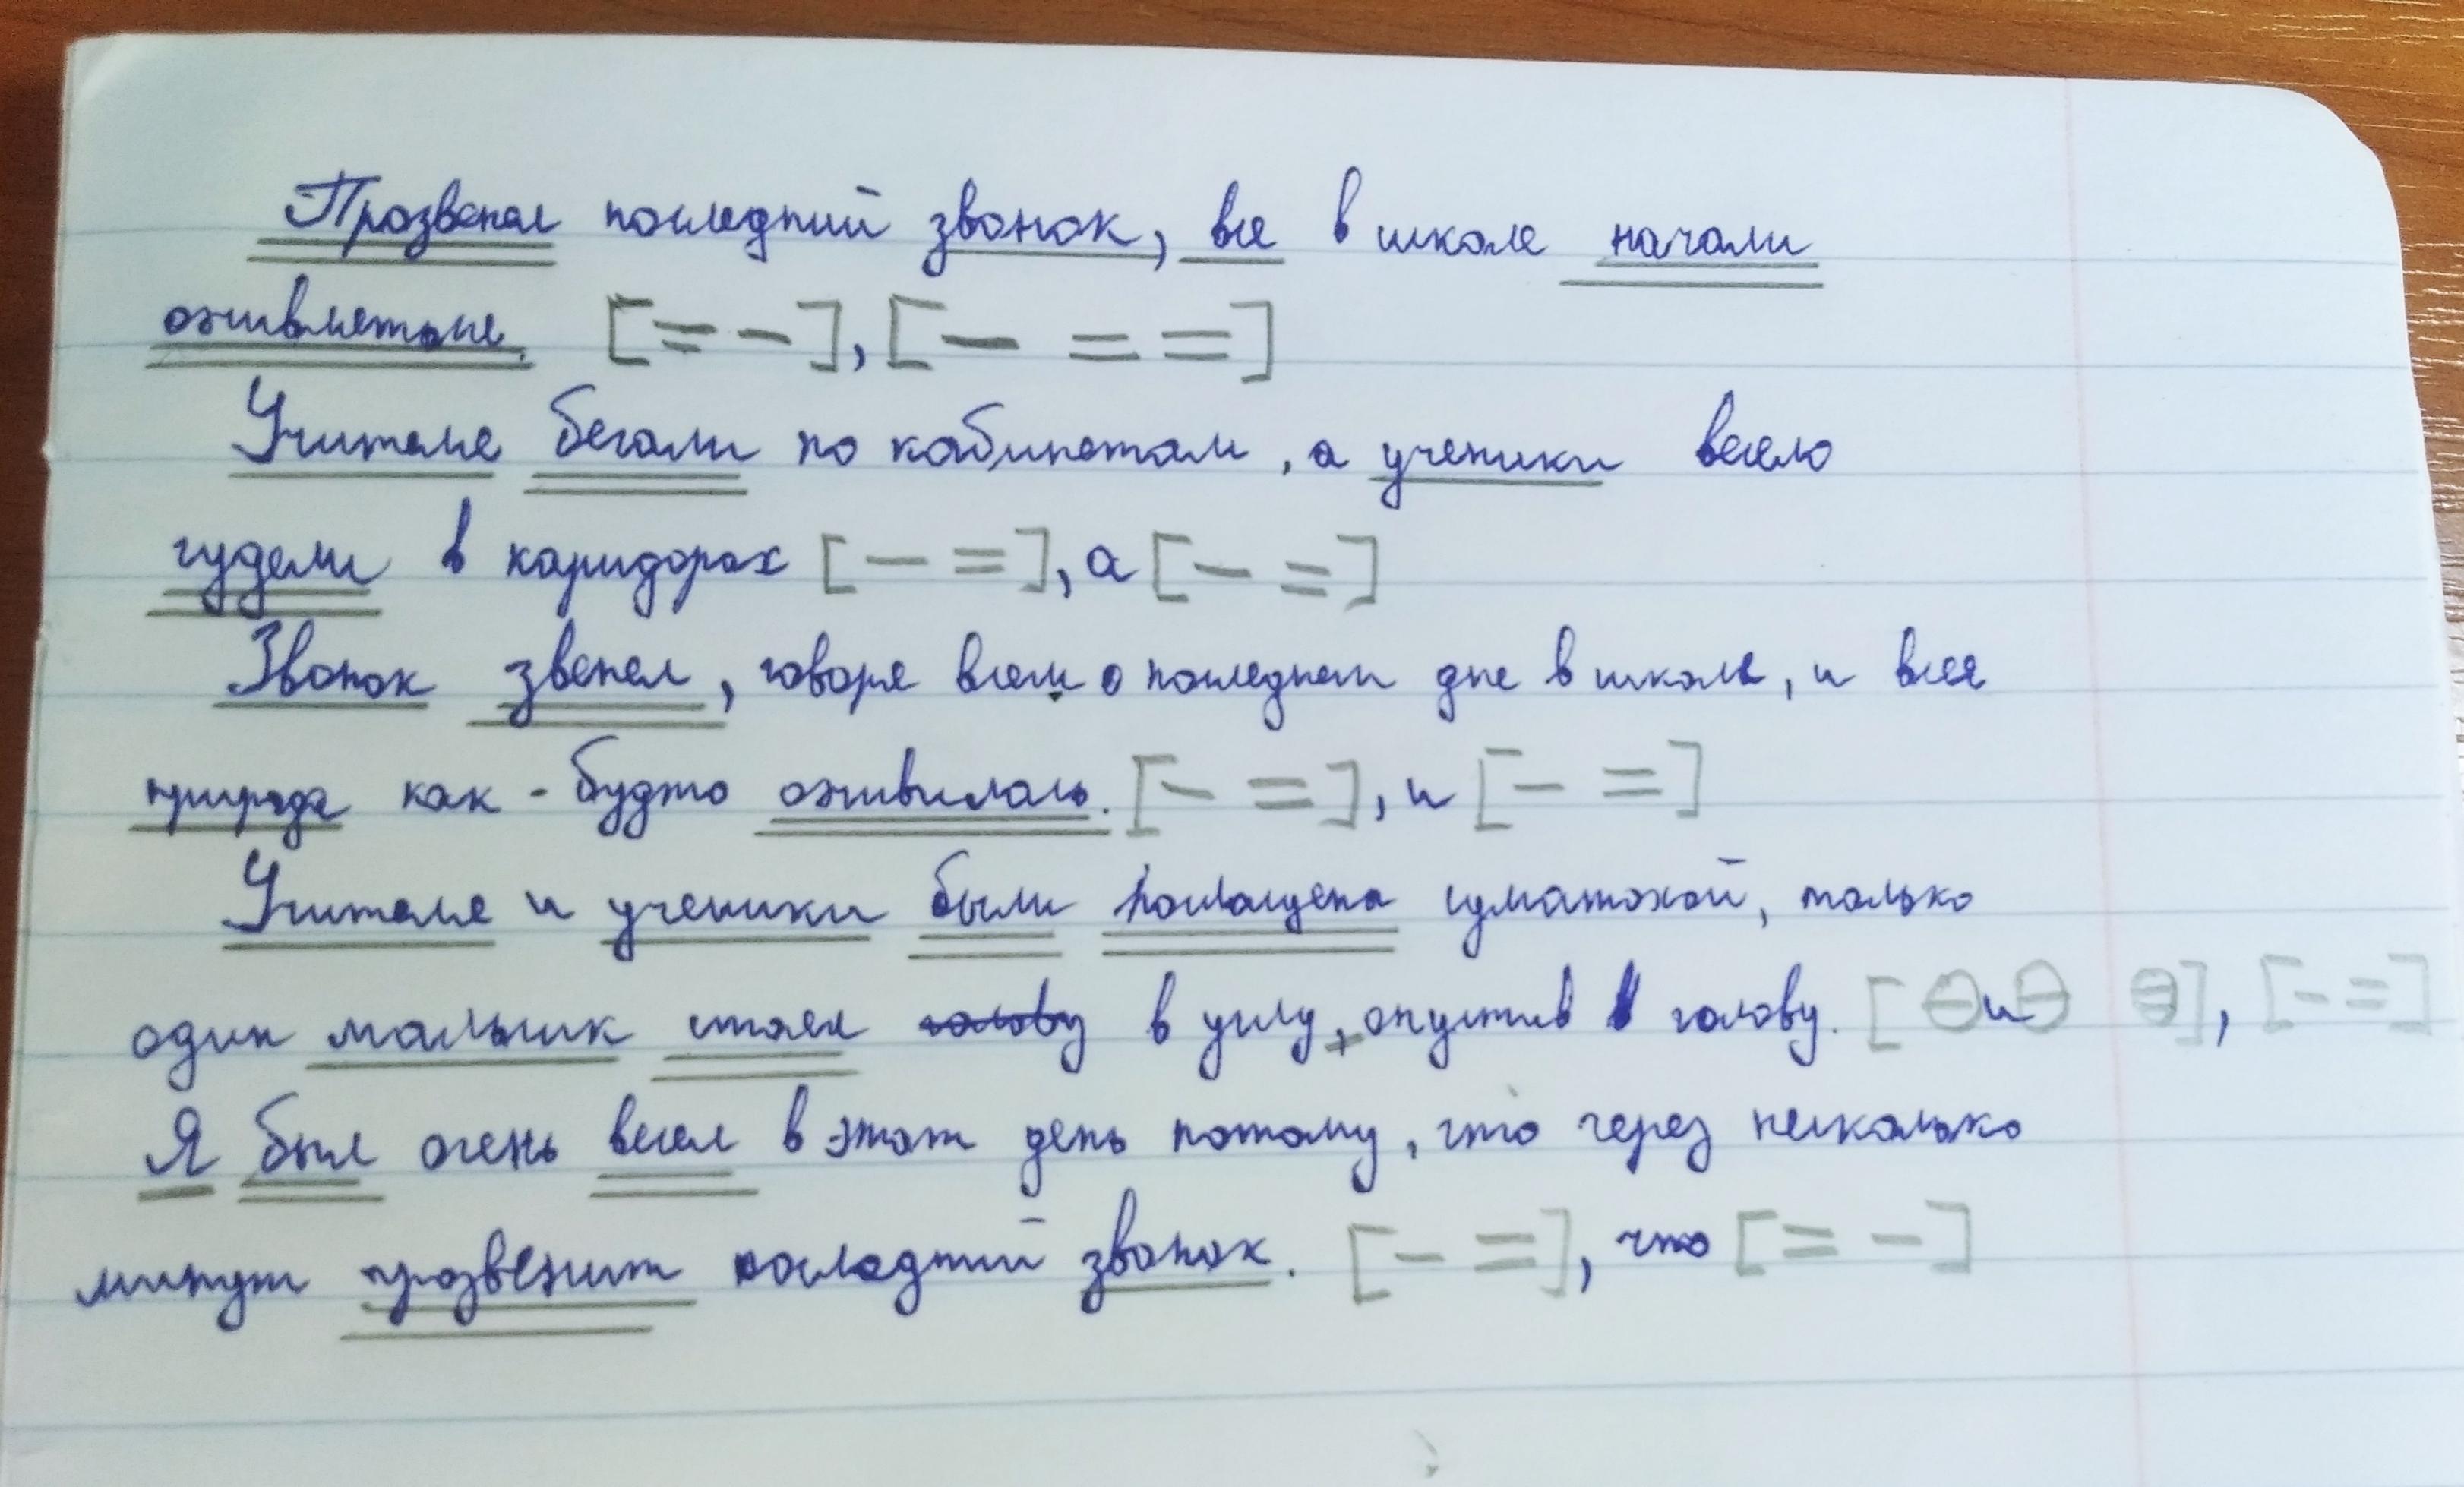 Прозвенел последний звонок, все в школе начали
оживлетоне. [= -], [- = =]
Учителя бегали по кабинетам, а ученики весело
гудели в каридорах [- =], а [- =]
Звонок звенел, говоря всем о последнем дне в школе, и вся
природа как-будто оживилась. [- =], и [- =]
Учителя и ученики были поглащены суматохой, только
один мальчик стоял голову в углу, опустив голову. [⊖и⊖ ⊜], [- =]
Я был очень весел в этот день потому, что через несколько
минут прозвенит последний звонок. [- =], что [= -]